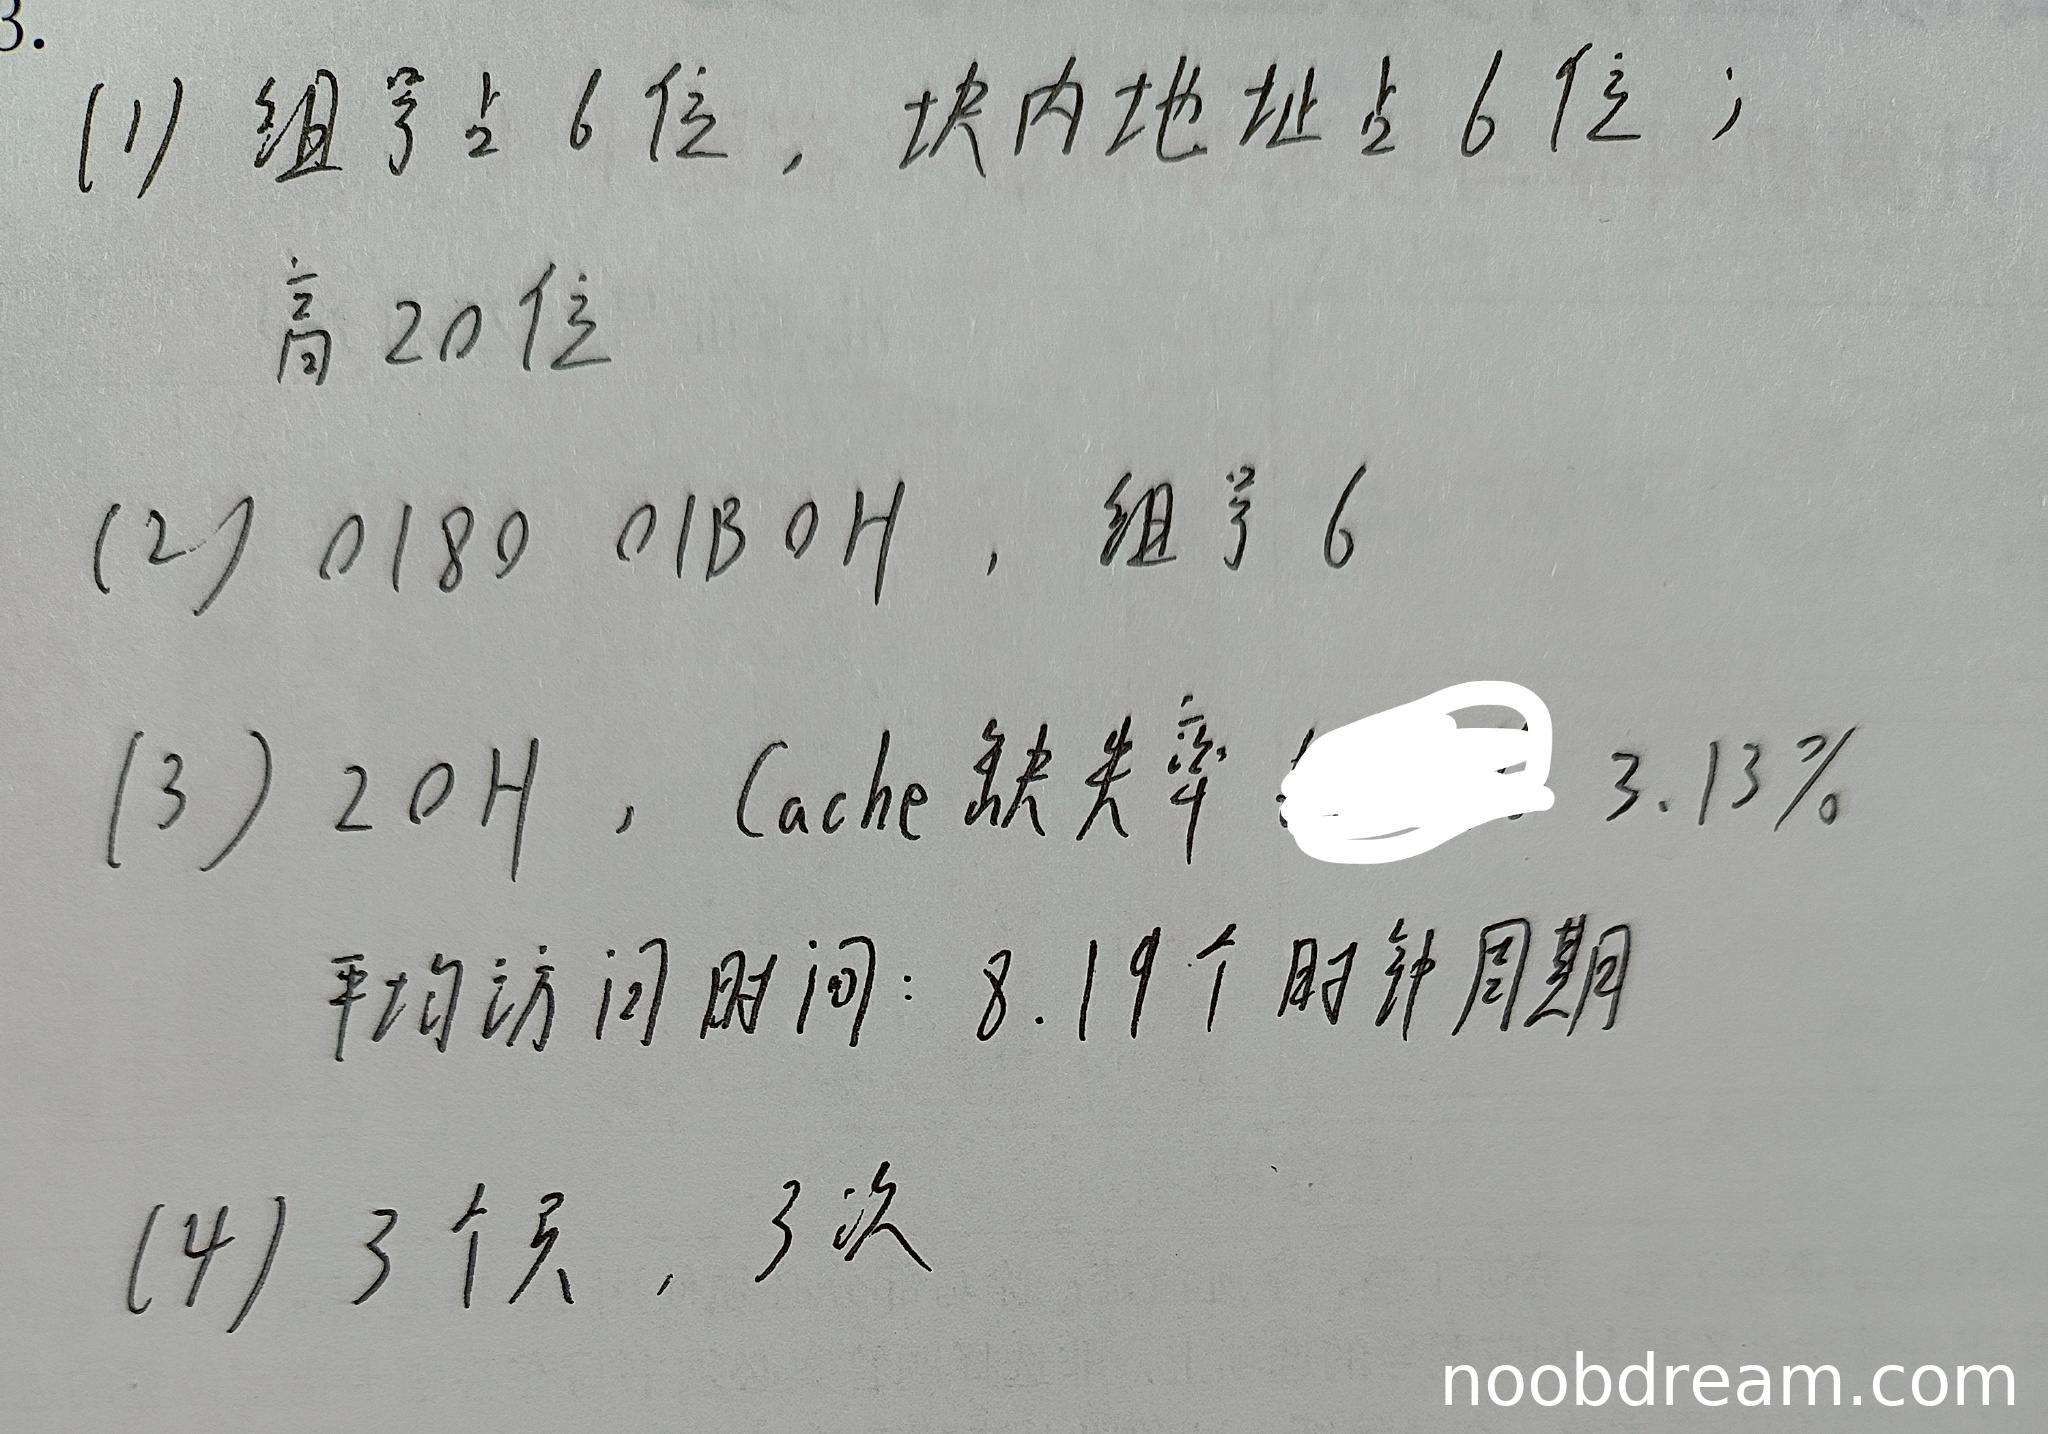 3.
(1) 组号占6位, 块内地址占6位;
高20位
(2) 0180 01B0H, 组号6
(3) 20H, Cache缺失率 3.13%
平均访问时间: 8.19个时钟周期
(4) 3个页, 3次
noobdream.com